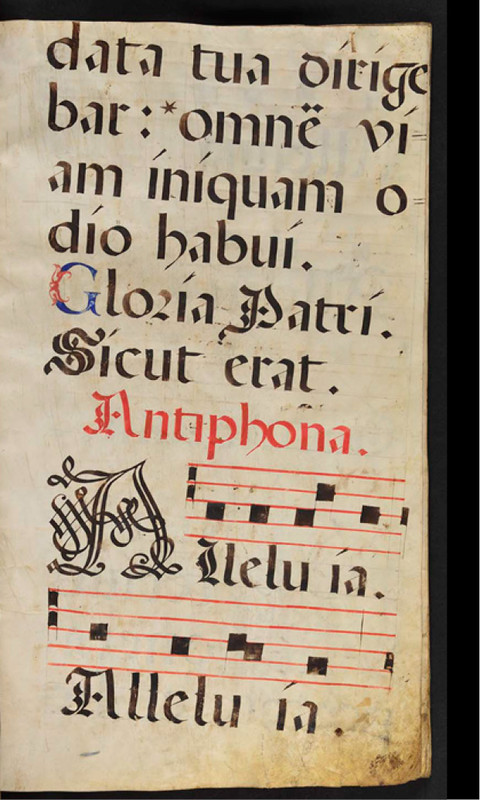 data tua dirige
bar: *omnē vi=
am iniquam o=
dio habui.
Gloria Patri.
Sicut erat.
Antiphona.
Allelu ia.
Allelu ia.